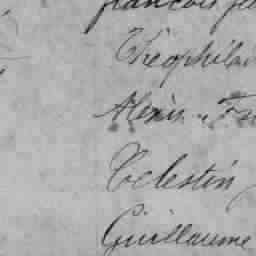 françois
Théophila
Alexis
Celestin
Guillaume